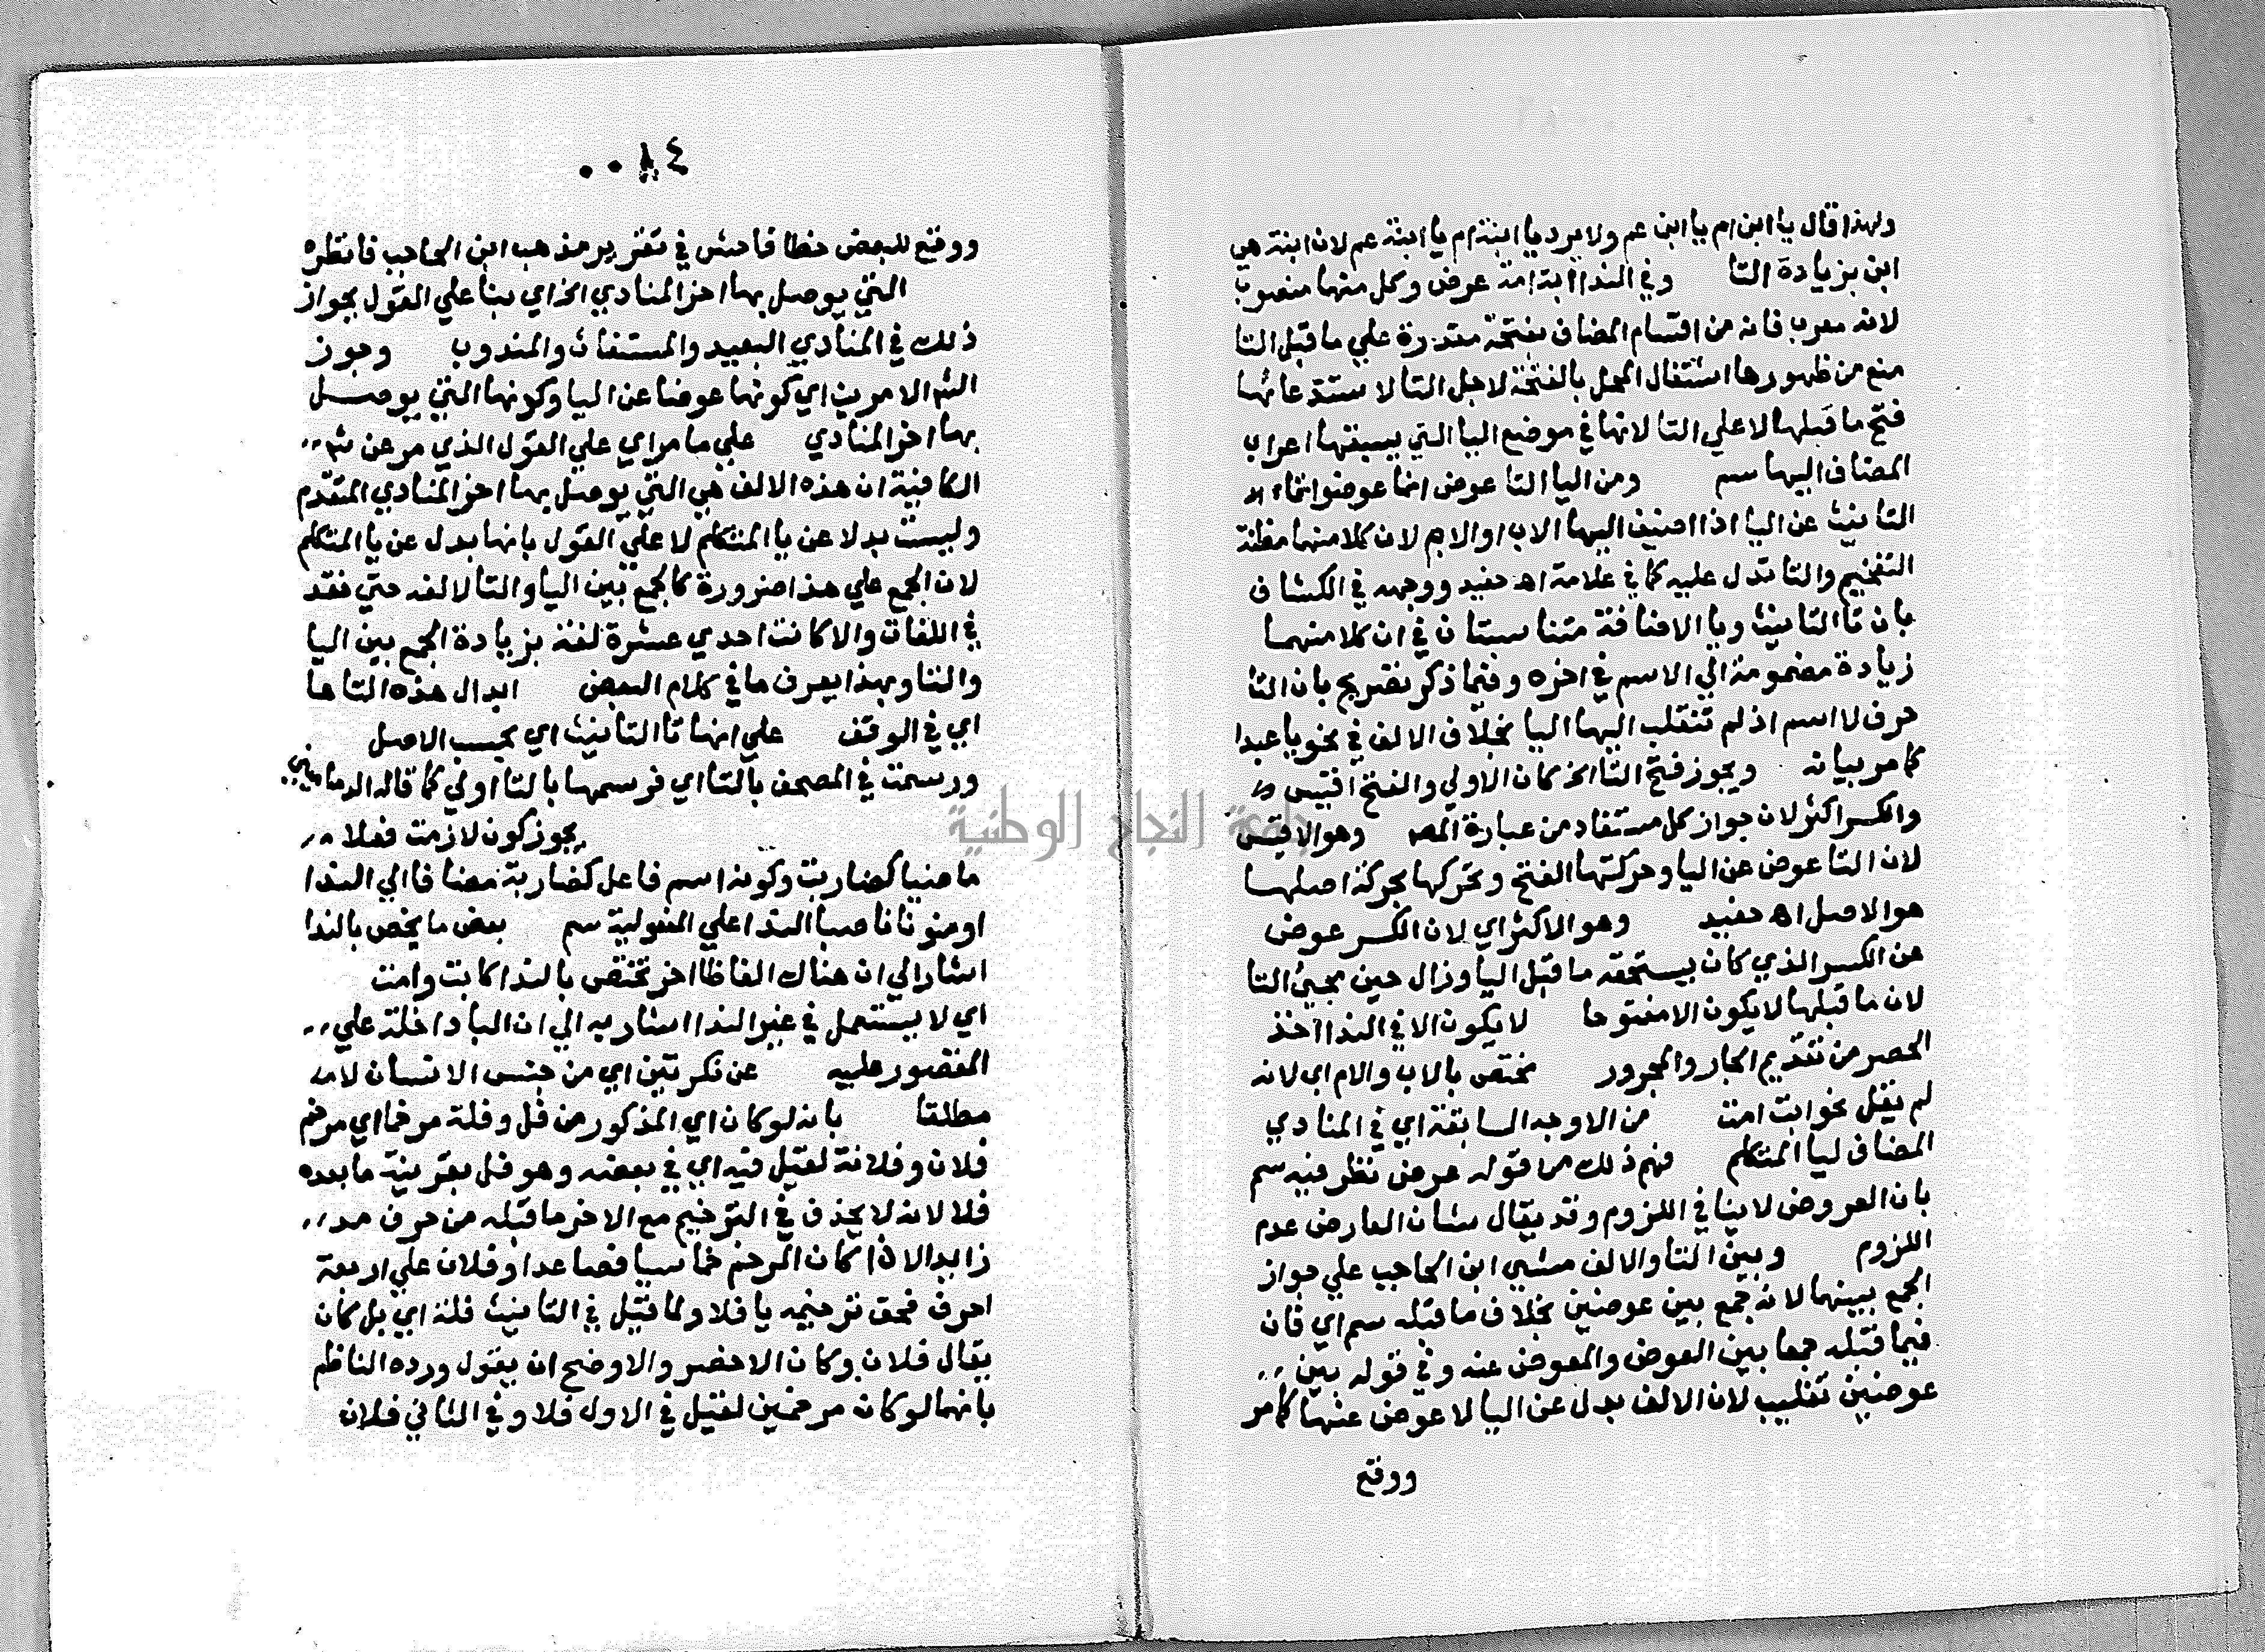 ولهذا قال يا ابن ام يا ابن عم ولا يرد يا ابنة ام يا ابنة عم لان ابنة هي
ابن بزيادة التا وفي الندا ابة امة عرض وكل منهما منصوب
لانه معرب فانه من اقسام المضاف بفتحة مقدرة علي ما قبل التا
منع من ظهورها اشتغال المحل بالفتحة لاجل التا لاستدعائها
فتح ما قبلها لا علي التا لانها في موضع اليا التي يسبقها اعراب
المضاف اليها سم ومن اليا التا عوض انما عوضوا تاء
التانيث عن اليا اذا اضيف اليها الاب او الام لان كلا منهما مظنة
التفخيم والتا تدل عليه كما في علامة اه حفيد ووجهه في الكشاف
بان تا التانيث ويا الاضافة متناسبتان في ان كلا منهما
زيادة مضمومة الي الاسم في اخره وفيما ذكر تصريح بان التا
حرف لا اسم اذ لم تنقلب اليها اليا بخلاف الالف في نحو يا عبدا
كما مر بيانه ويجوز فتح التا الخ كان الاولي والفتح اقيس
والكسر اكثر لان جواز كل مستفاد من عبارة المص وهو الاقيس
لان التا عوض عن اليا وحركتها الفتح وتحركها بحركة اصلها
هو الاصل اه حفيد وهو الاكثر اي لان الكسر عوض
عن الكسر الذي كان يستحقه ما قبل اليا وزال حين مجيئ التا
لان ما قبلها لا يكون الا مفتوحا لا يكون الا في الندا اخذ
الحصر من تقديم الجار والمجرور نختص بالاب والام اي لانه
لم يقل نحو ابت امت من الاوجه السابقة اي في المنادي
المضاف ليا المتكلم فهم ذلك من قوله عرض نظر فيه سم
بان العروض لا ينافي اللزوم وقد يقال شان العارض عدم
اللزوم وبين التا والالف مشي ابن الحاجب علي جواز
الجمع بينهما لانه جمع بين عوضين بخلاف ما قبله سم اي فان
فيما قبله جمعا بين العوض والمعوض عنه وفي قوله بين
عوضين تغليب لان الالف بدل عن اليا لا عوض عنها كما مر
ووقع
٠٠٨٤
ووقع للبعض خطا فاحش في تقرير مذهب ابن الحاجب فانظره
التي يوصل بها اخر المنادي الخ اي بنا علي القول بجواز
ذلك في المنادي البعيد والمستغاث والمندوب وجوز
الشم الامرين اي كونها عوضا عن اليا وكونها التي يوصل
بها اخر المنادي علي ما مر اي علي القول الذي مر عن ش
الكافية ان هذه الالف هي التي يوصل بها اخر المنادي المتقدم
وليست بدلا عن يا المتكلم لا علي القول بانها بدل عن يا المتكلم
لان الجمع علي هذا ضرورة كالجمع بين اليا والتا لا لغه حتي فقد
في اللغات والا كانت احدي عشرة لغة بزيادة الجمع بين اليا
والتا وبهذا يعرف ما في كلام البعض ابدال هذه التا ها
اي في الوقف علي انها تا التانيث اي بحسب الاصل
ورسمت في المصحف بالتا اي فرسمها بالتا اولي كما قاله الدماميني
يجوز كون لازمت فعلا
ماضيا كضاربت وكونه اسم فاعل كضاربة مضافا الي الندا
او منونا ناصبا الندا علي المفولية سم بعض ما يخص بالندا
اشار الي ان هناك الفاظا اخر تختص بالندا كابت وامت
اي لا يستعمل في غير الندا اشار به الي ان البا داخلة علي
المقصور عليه عن نكرتين اي من جنس الانسان لا
مطلقا بانه لو كان اي المذكور من فل وفلة مرخما اي مرخم
فلان وفلانة لقيل فيه اي في بعضه وهو فل بقرينة ما بعده
فلا لانه لا يحذف في الترخيم مع الاخر ما قبله من حرف مد
زايد الا اذا كان المرخم خماسيا فصاعدا وفلان علي اربعة
احرف فحق ترخيمه يا فلا ولما قيل في التانيث فلة اي بل كان
يقال فلان وكان الاخصر والاوضح ان يقول ورده الناظم
بانهما لو كان مرخمين لقيل في الاول فلا وفي الثاني فلان